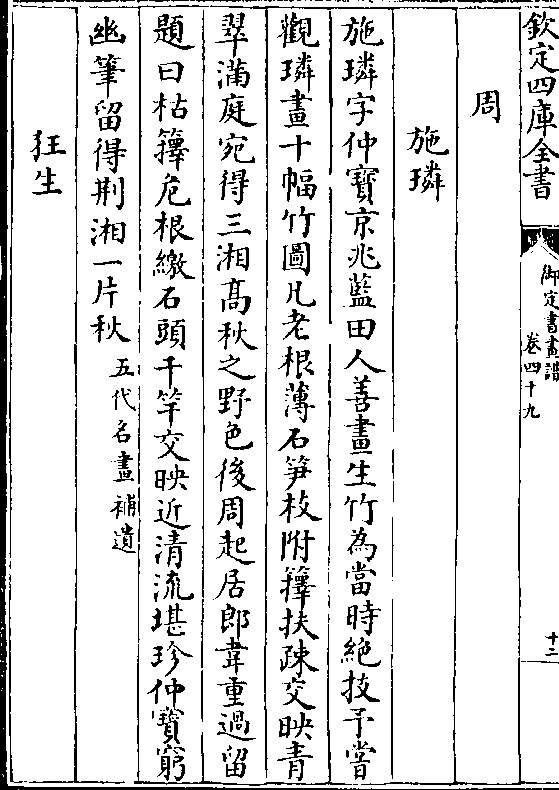 欽定四庫全書
御定書畫譜
卷四十九
十二
周
施璘
施璘字仲寶京兆藍田人善畫生竹為當時絶技予嘗
觀璘畫十幅竹圖凡老根薄石笋枝附籜扶疎交映青
翠滿庭宛得三湘髙秋之野色後周起居郎韋重過留
題曰枯籜危根繳石頭千竿交映近清流堪珍仲寶窮
幽筆留得荆湘一片秋五代名畫補遺
狂生